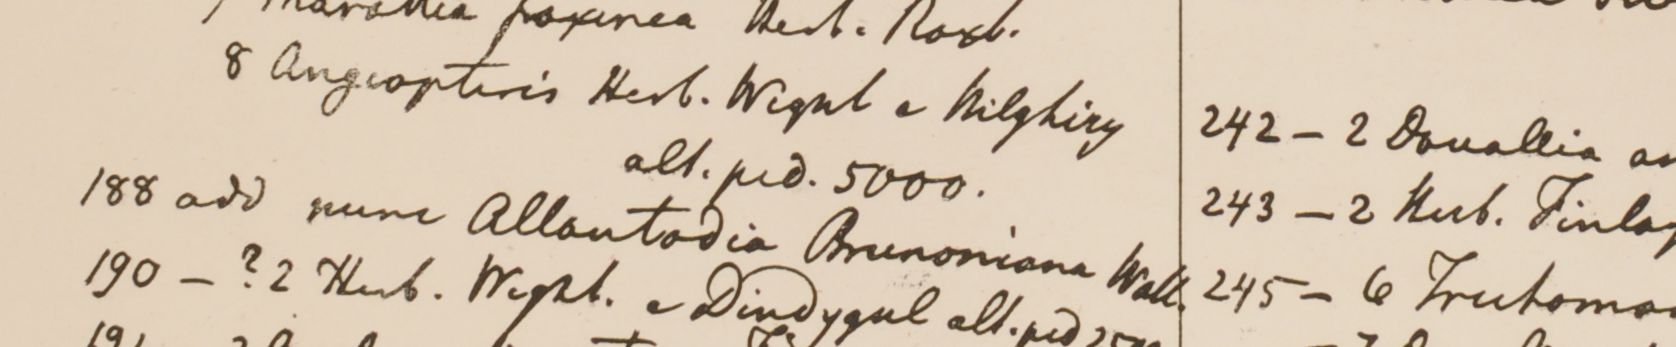 7 Marattia fraxinea Herb. Roxb.
8 Angiopteris Herb. Wight e Nilghiry
alt. ped. 5000.
188 add nunc Allantodia Brunoniana Wall.
190 - ? 2 Herb. Wight. e Dindygul alt. ped 2500
191
242 - 2 Davallia
243 - 2 Herb. Finlay
245 - 6 Trichoman